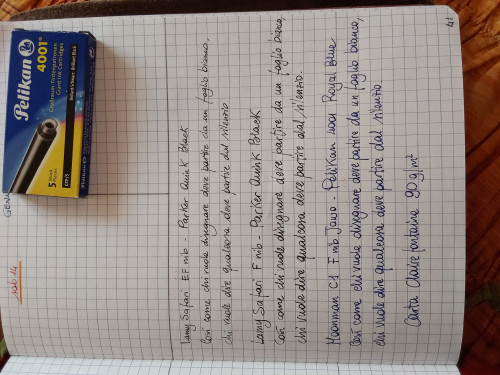 Pelikan
4001®
Großraum-Tintenpatronen
Giant Ink Cartridges
5
GTP/5
sab 14
41
Lamy Safari EF nib - Parker Quink Black
Così come chi vuole disegnare deve partire da un foglio bianco,
chi vuole dire qualcosa deve partire dal silenzio
Lamy Safari F nib - Parker Quink Black
Così come chi vuole disegnare deve partire da un foglio bianco,
chi vuole dire qualcosa deve partire dal silenzio.
Moonman C1 F nib Jowo - Pelikan 4001 Royal Blue
Così come chi vuole disegnare deve partire da un foglio bianco,
chi vuole dire qualcosa deve partire dal silenzio
Carta Clairefontaine 90 g/m²